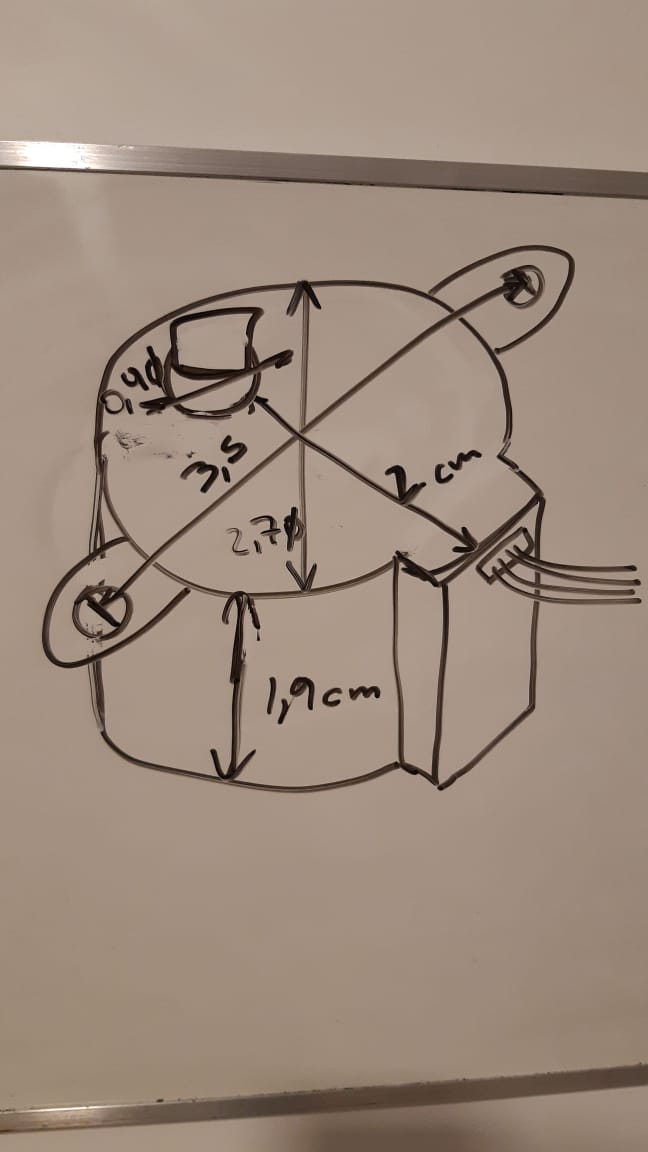 0,4φ
3,5
2 cm
2,7φ
1,9cm